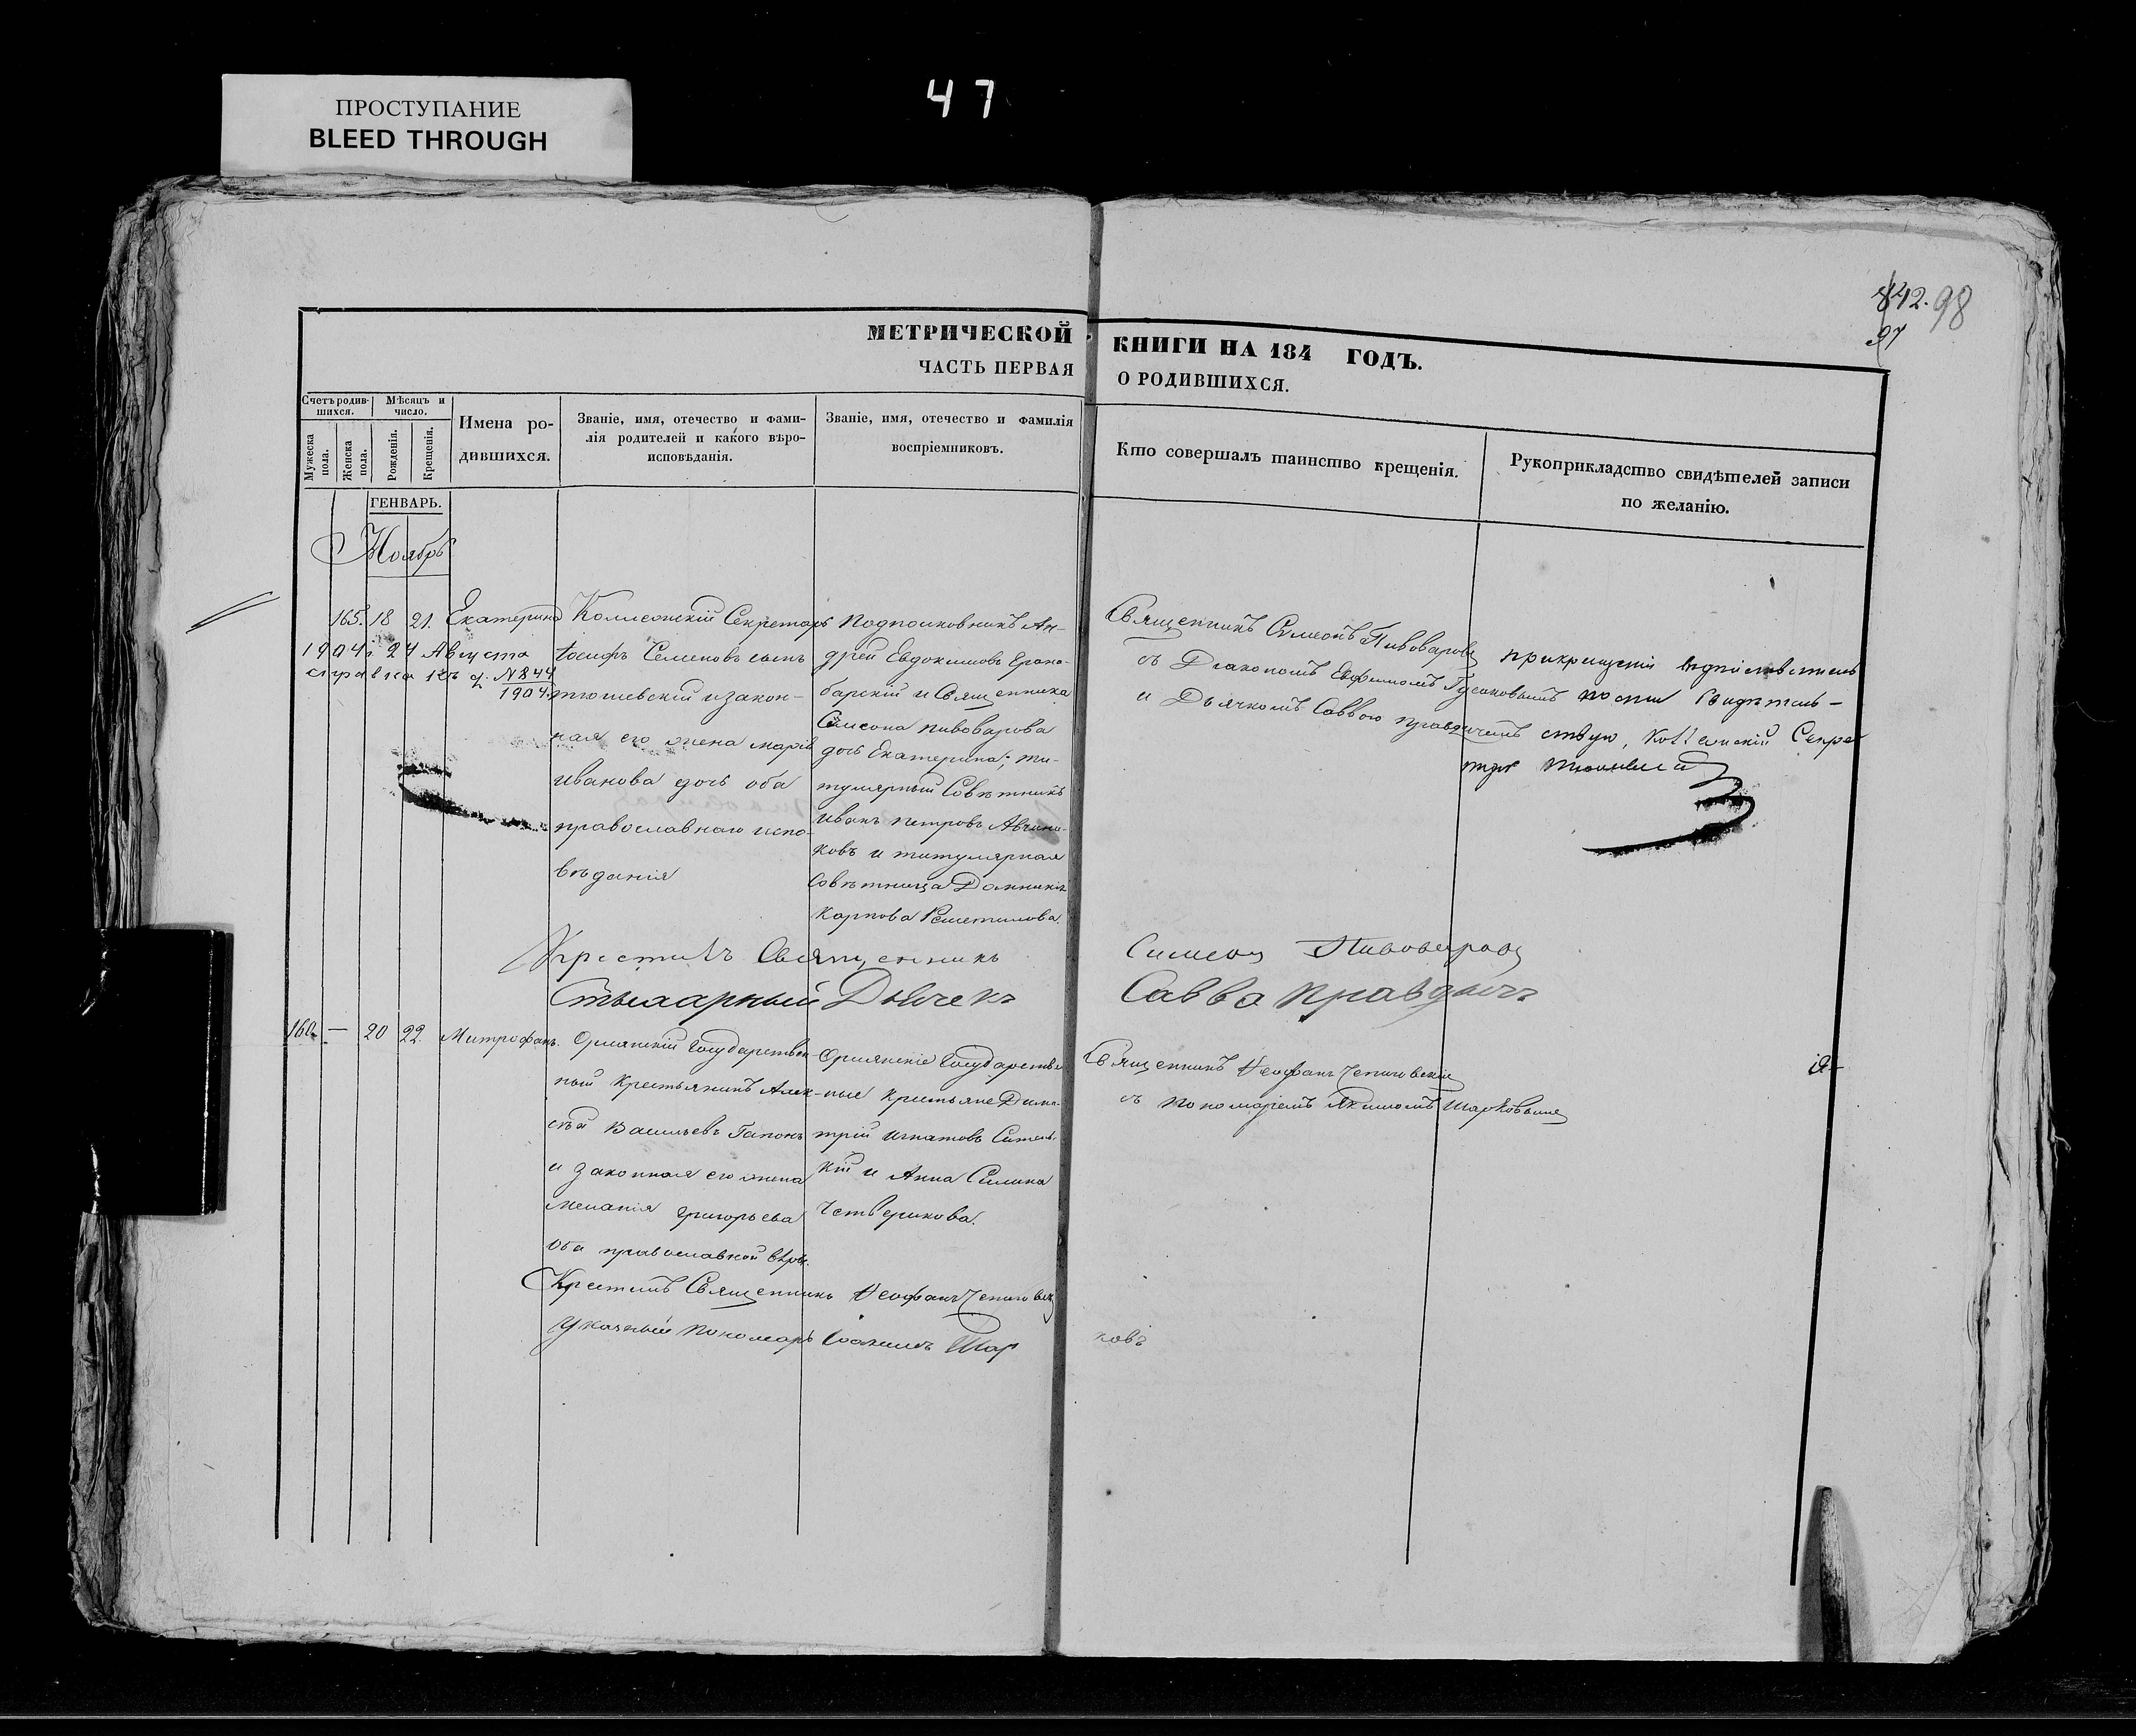 47
ПРОСТУПАНИЕ
BLEED THROUGH
842. 98
97
МЕТРИЧЕСКОЙ КНИГИ НА 184 ГОДЪ.
ЧАСТЬ ПЕРВАЯ О РОДИВШИХСЯ.
Счетъ родившихся.
Мѣсяцъ и число.
Мужеска пола.
Женска пола.
Рожденія.
Крещенія.
Имена родившихся.
Званіе, имя, отечество и фамилія родителей и какого вѣроисповѣданія.
Званіе, имя, отечество и фамилія воспріемниковъ.
Кто совершалъ таинство крещенія.
Рукоприкладство свидѣтелей записи по желанію.
ГЕНВАРЬ.
Ноябрь
165. 18 21. Екатерина
1904 г. 24 Августа
справка къ д. №844
1904.
Коллежскій Секретарь
Іосифъ Семеновъ сынъ
тюшевскій и закон-
ная его жена Марія
Иванова дочь оба
православнаго испо-
вѣданія
Подполковникъ Ан-
дрей Евдокимовъ
и Священника
Симеона Пивоварова
дочь Екатерина; ти-
тулярный Совѣтникъ
Иванъ Петровъ
ковъ и титулярная
Совѣтница Домникія
Карпова
Священникъ Симеонъ Пивоваровъ
съ Діакономъ Евфимомъ Гусаковымъ
и Дьячкомъ Саввою Правдичемъ
при крещеніи
свидѣтель-
ствую, Коллежскій Секре
тарь
Крестилъ Священникъ Симеонъ Пивоваровъ
Стихарный Дьячекъ Савва Правдичъ
160. — 20 22. Митрофанъ.
Государствен-
ный крестьянинъ Алек-
сѣй Васильевъ Гапонъ
и законная его жена
Меланія Григорьева
оба православной вѣры.
Государствен
ные крестьяне Дими-
трій Игнатовъ
кій и Анна Силина
Четверикова.
Священникъ Ѳеофанъ
съ пономаремъ Якимомъ Шарковымъ
Крестилъ Священникъ Ѳеофанъ
Указный Пономарь Іоакимъ Шар ковъ